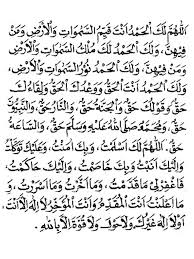 اَللّٰهُمَّ لَكَ الْحَمْدُ اَنْتَ قَيِّمُ السَّمٰوَاتِ وَالْاَرْضِ وَمَنْ
فِيْهِنَّ، وَلَكَ الْحَمْدُ لَكَ مُلْكُ السَّمٰوَاتِ وَالْاَرْضِ
وَمَنْ فِيْهِنَّ، وَلَكَ الْحَمْدُ نُوْرُ السَّمٰوَاتِ وَالْاَرْضِ،
وَلَكَ الْحَمْدُ اَنْتَ الْحَقُّ وَوَعْدُكَ الْحَقُّ وَلِقَاءُكَ
حَقٌّ، وَقَوْلُكَ حَقٌّ وَالْجَنَّةُ حَقٌّ، وَالنَّارُ حَقٌّ، وَالنَّبِيُّوْنَ
حَقٌّ، وَمُحَمَّدٌ صَلَّى اللهُ عَلَيْهِ وَسَلَّمَ حَقٌّ، وَالسَّاعَةُ
حَقٌّ، اَللّٰهُمَّ لَكَ اَسْلَمْتُ، وَبِكَ اٰمَنْتُ، وَعَلَيْكَ تَوَكَّلْتُ
وَاِلَيْكَ اَنَبْتُ وَبِكَ خَاصَمْتُ، وَاِلَيْكَ حَاكَمْتُ،
فَاغْفِرْلِيْ مَا قَدَّمْتُ، وَمَا اَخَّرْتُ وَمَا اَسْرَرْتُ، وَمَا
اَعْلَنْتُ اَنْتَ الْمُقَدِّمُ وَاَنْتَ الْمُؤَخِّرُ لَا اِلٰهَ اِلَّا اَنْتَ
اَوْ لَا اِلٰهَ غَيْرُكَ وَلَا حَوْلَ وَلَا قُوَّةَ اِلَّا بِاللهِ.